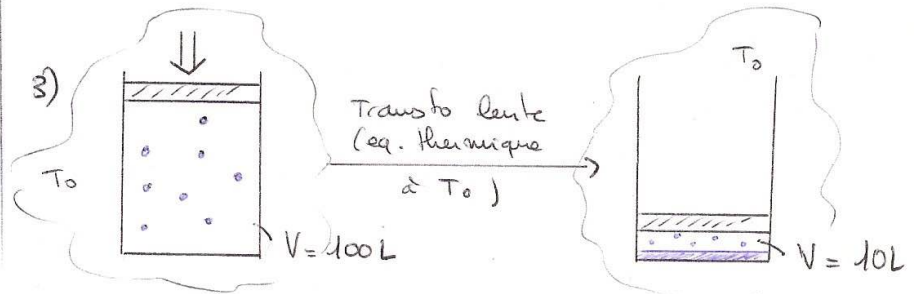 3)
T₀
V = 100L
Transfo lente
(eq. thermique
à T₀ )
T₀
V = 10L